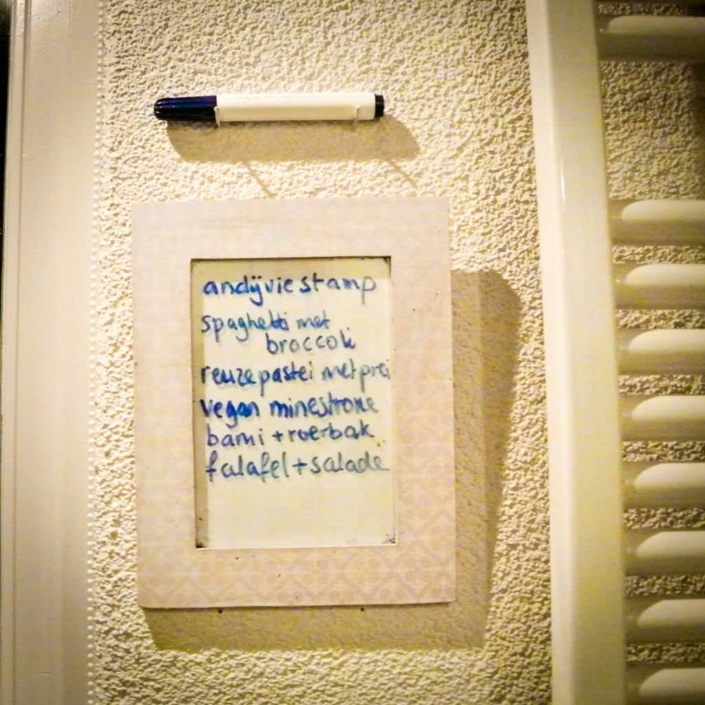 andijvie stamp
spaghetti met
broccoli
reuzepastei met prei
vegan minestrone
bami + roerbak
falafel + salade